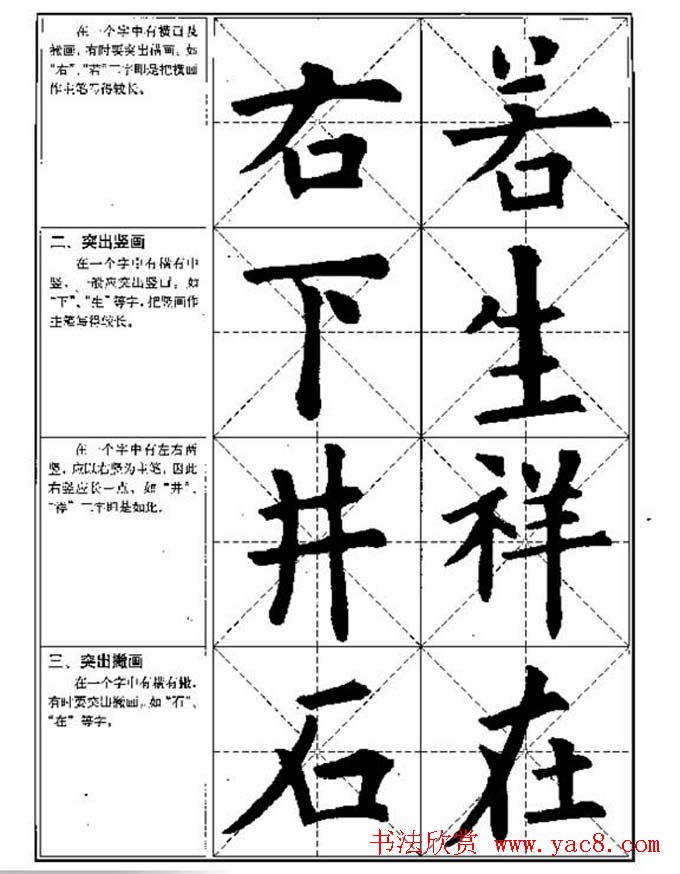 在一个字中有横画及
撇画，有时要突出横画。如
“右”、“若”二字即是把横画
作主笔写得较长。
右 若
二、突出竖画
在一个字中有横有中
竖，一般应突出竖画。如
“下”、“生”等字，把竖画作
主笔写得较长。
下 生
在一个字中有左右两
竖，点以右竖为主笔，因此
右竖应长一点，如“井”、
“祥”二字即是如此。
井 祥
三、突出撇画
在一个字中有横有撇，
有时要突出撇画。如“石”、
“在”等字。
石 在
书法欣赏 www.yac8.com